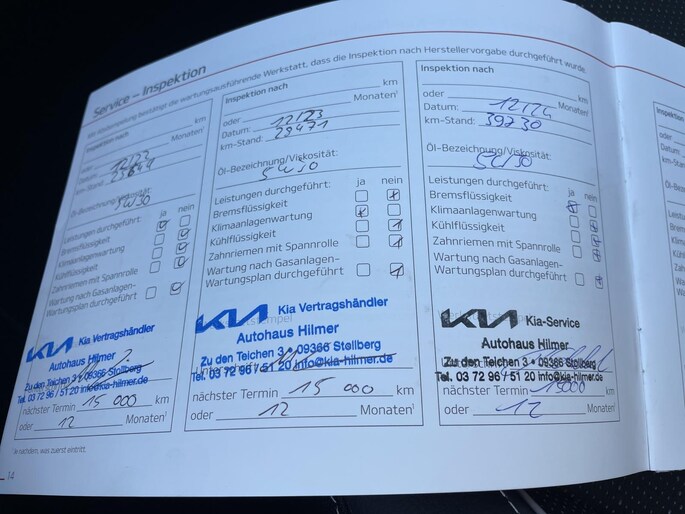 Service – Inspektion
Mit Abstempelung bestätigt die wartungsausführende Werkstatt, dass die Inspektion nach Herstellervorgabe durchgeführt wurde.
Inspektion nach
km
oder
Monaten¹
Datum: 12/23
km-Stand:
Öl-Bezeichnung/Viskosität:
5W30
Leistungen durchgeführt: ja nein
Bremsflüssigkeit
Klimaanlagenwartung
Kühlflüssigkeit
Zahnriemen mit Spannrolle
Wartung nach Gasanlagen-
Wartungsplan durchgeführt
KIA Kia Vertragshändler
Autohaus Hilmer
Zu den Teichen 3 • 09366 Stollberg
Tel. 03 72 96 / 51 20 info@kia-hilmer.de
nächster Termin 15 000 km
oder 12 Monaten¹
¹ je nachdem, was zuerst eintritt.
14
Inspektion nach
km
oder
Monaten¹
Datum: 12/23
km-Stand: 29471
Öl-Bezeichnung/Viskosität:
5W30
Leistungen durchgeführt: ja nein
Bremsflüssigkeit
Klimaanlagenwartung
Kühlflüssigkeit
Zahnriemen mit Spannrolle
Wartung nach Gasanlagen-
Wartungsplan durchgeführt
KIA Kia Vertragshändler
Autohaus Hilmer
Zu den Teichen 3 • 09366 Stollberg
Tel. 03 72 96 / 51 20 info@kia-hilmer.de
nächster Termin 15 000 km
oder 12 Monaten¹
Inspektion nach
km
oder
Monaten¹
Datum: 12/24
km-Stand: 39730
Öl-Bezeichnung/Viskosität:
5W30
Leistungen durchgeführt: ja nein
Bremsflüssigkeit
Klimaanlagenwartung
Kühlflüssigkeit
Zahnriemen mit Spannrolle
Wartung nach Gasanlagen-
Wartungsplan durchgeführt
KIA Kia-Service
Autohaus Hilmer
Zu den Teichen 3 • 09366 Stollberg
Tel. 03 72 96 / 51 20 info@kia-hilmer.de
nächster Termin 15000 km
oder 12 Monaten¹
Inspektion
oder
Datum:
km-Stand
Öl-Bezei